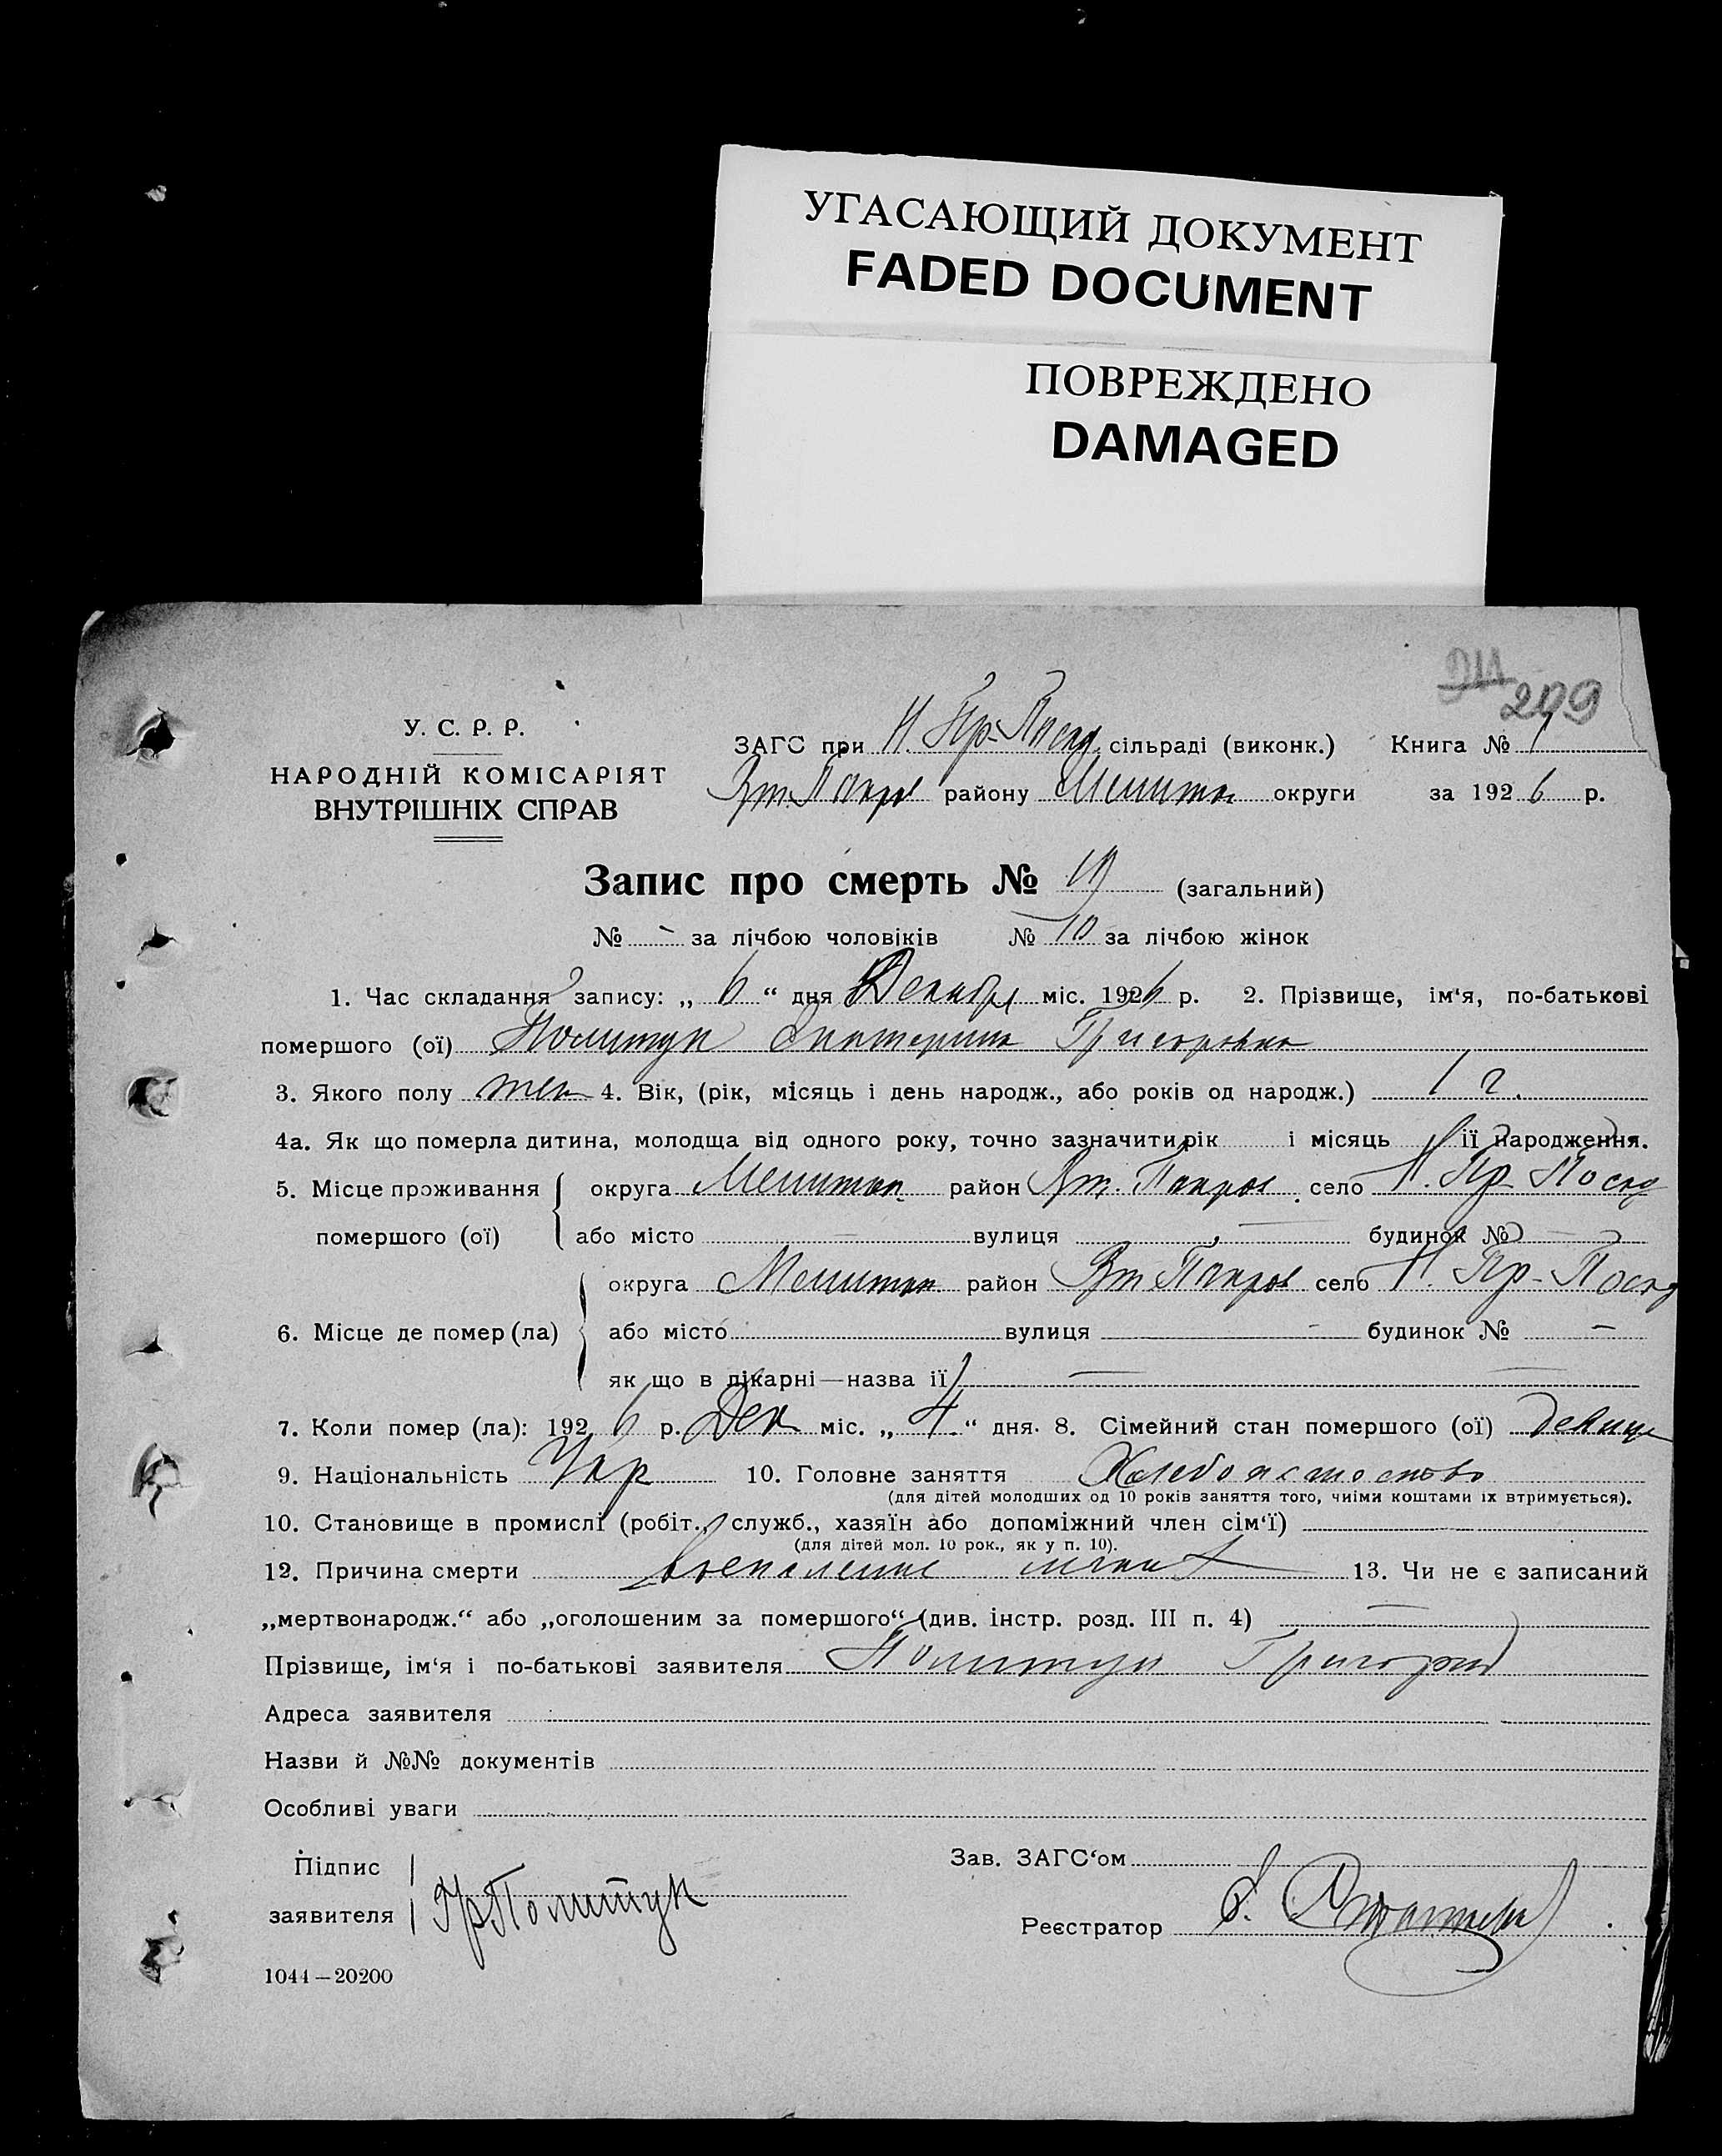 УГАСАЮЩИЙ ДОКУМЕНТ
FADED DOCUMENT
ПОВРЕЖДЕНО
DAMAGED
299
У. С. Р. Р.
НАРОДНІЙ КОМІСАРІЯТ
ВНУТРІШНІХ СПРАВ
ЗАГС при Н. Пр-Посад сільраді (виконк.) Книга № 1
району округи за 1926 р.
Запис про смерть № 19 (загальний)
№ - за лічбою чоловіків № 10 за лічбою жінок
1. Час складання запису: „ 6 “ дня Декабря міс. 1926 р. 2. Прізвище, ім‘я, по-батькові
помершого (ої) Политук Екатерина Григоровна
3. Якого полу жен 4. Вік, (рік, місяць і день народж., або років од народж.) 1 г.
4а. Як що померла дитина, молодща від одного року, точно зазначити рік і місяць її народження.
5. Місце проживання округа район село Н. Пр-Посад
помершого (ої) або місто — вулиця — будинок № —
округа район село Н. Пр-Посад
6. Місце де помер (ла) або місто вулиця - будинок № —
як що в лікарні—назва ії —
7. Коли помер (ла): 1926 р. Дек міс. „ 4 “ дня. 8. Сімейний стан помершого (ої) девица
9. Національність Укр 10. Головне заняття
(для дітей молодших од 10 років заняття того, чиїми коштами їх втримується).
10. Становище в промислі (робіт., служб., хазяїн або допоміжний член сім‘ї)
(для дітей мол. 10 рок., як у п. 10).
12. Причина смерти воспаление 13. Чи не є записаний
„мертвонародж.“ або „оголошеним за помершого“ (див. інстр. розд. III п. 4) —
Прізвище, ім‘я і по-батькові заявителя Политук Григорий
Адреса заявителя
Назви й №№ документів
Особливі уваги
Підпис
заявителя Гр Политук
Зав. ЗАГС‘ом
Реєстратор
1044—20200